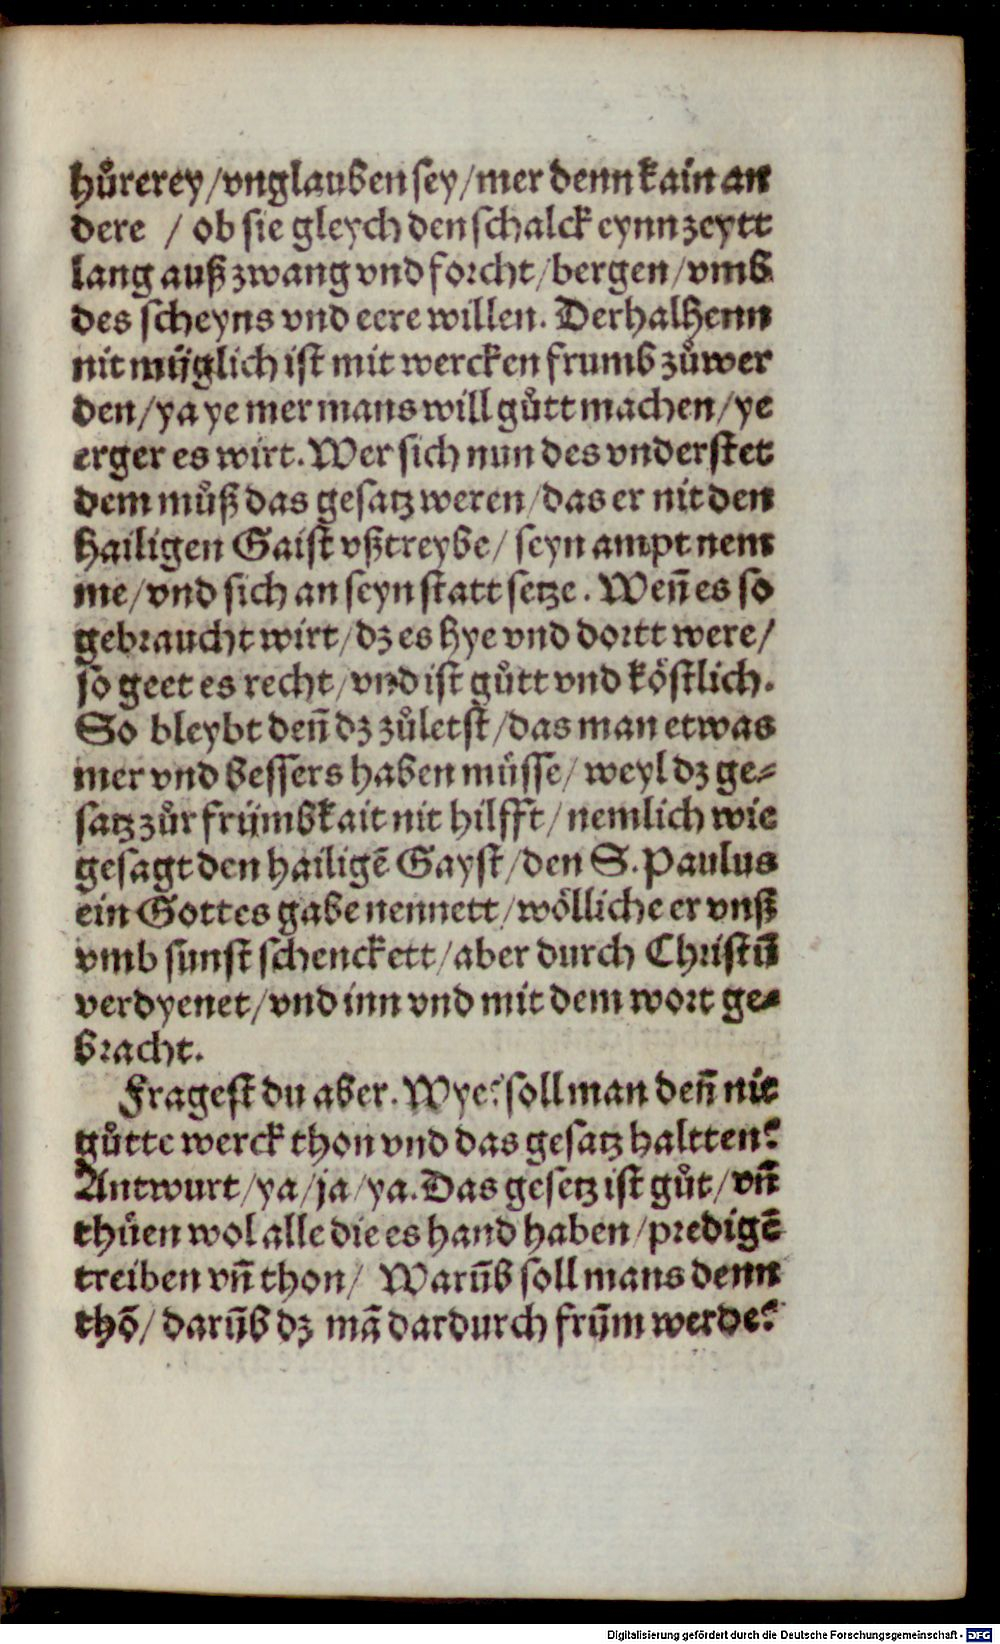 hůrerey/vnglauben sey/mer denn kain an
dere / ob sie gleych den schalck eynn zeytt
lang auß zwang vnd forcht/bergen/vmb
des scheyns vnd eere willen. Derhalhenn
nit müglich ist mit wercken frumb zůwer
den/ya ye mer mans will gůtt machen/ye
erger es wirt. Wer sich nun des vnderstet
dem můß das gesatz weren/das er nit den
hailigen Gaist vßtreybe/ seyn ampt nem
me/vnd sich an seyn statt setze. Weñ es so
gebraucht wirt/dz es hye vnd dortt were/
so geet es recht/vnd ist gůtt vnd köstlich.
So bleybt deñ dz zůletst/das man etwas
mer vnd bessers haben müsse/ weyl dz ge⸗
satz zůr frümbkait nit hilfft/nemlich wie
gesagt den hailigē Gayst/den S. Paulus
ein Gottes gabe nennett/wölliche er vnß
vmb sunst schenckett/aber durch Christū
verdyenet/vnd inn vnd mit dem wort ge⸗
bracht.
Fragest du aber. Wye? soll man deñ nit
gůtte werck thon vnd das gesatz haltten?
Antwurt/ya/ja/ya. Das gesetz ist gůt/vñ
thüen wol alle die es hand haben/predigē
treiben vñ thon/ Warūb soll mans denn
thō/darūb dz mā dardurch frūm werde?
Digitalisierung gefördert durch die Deutsche Forschungsgemeinschaft - DFG